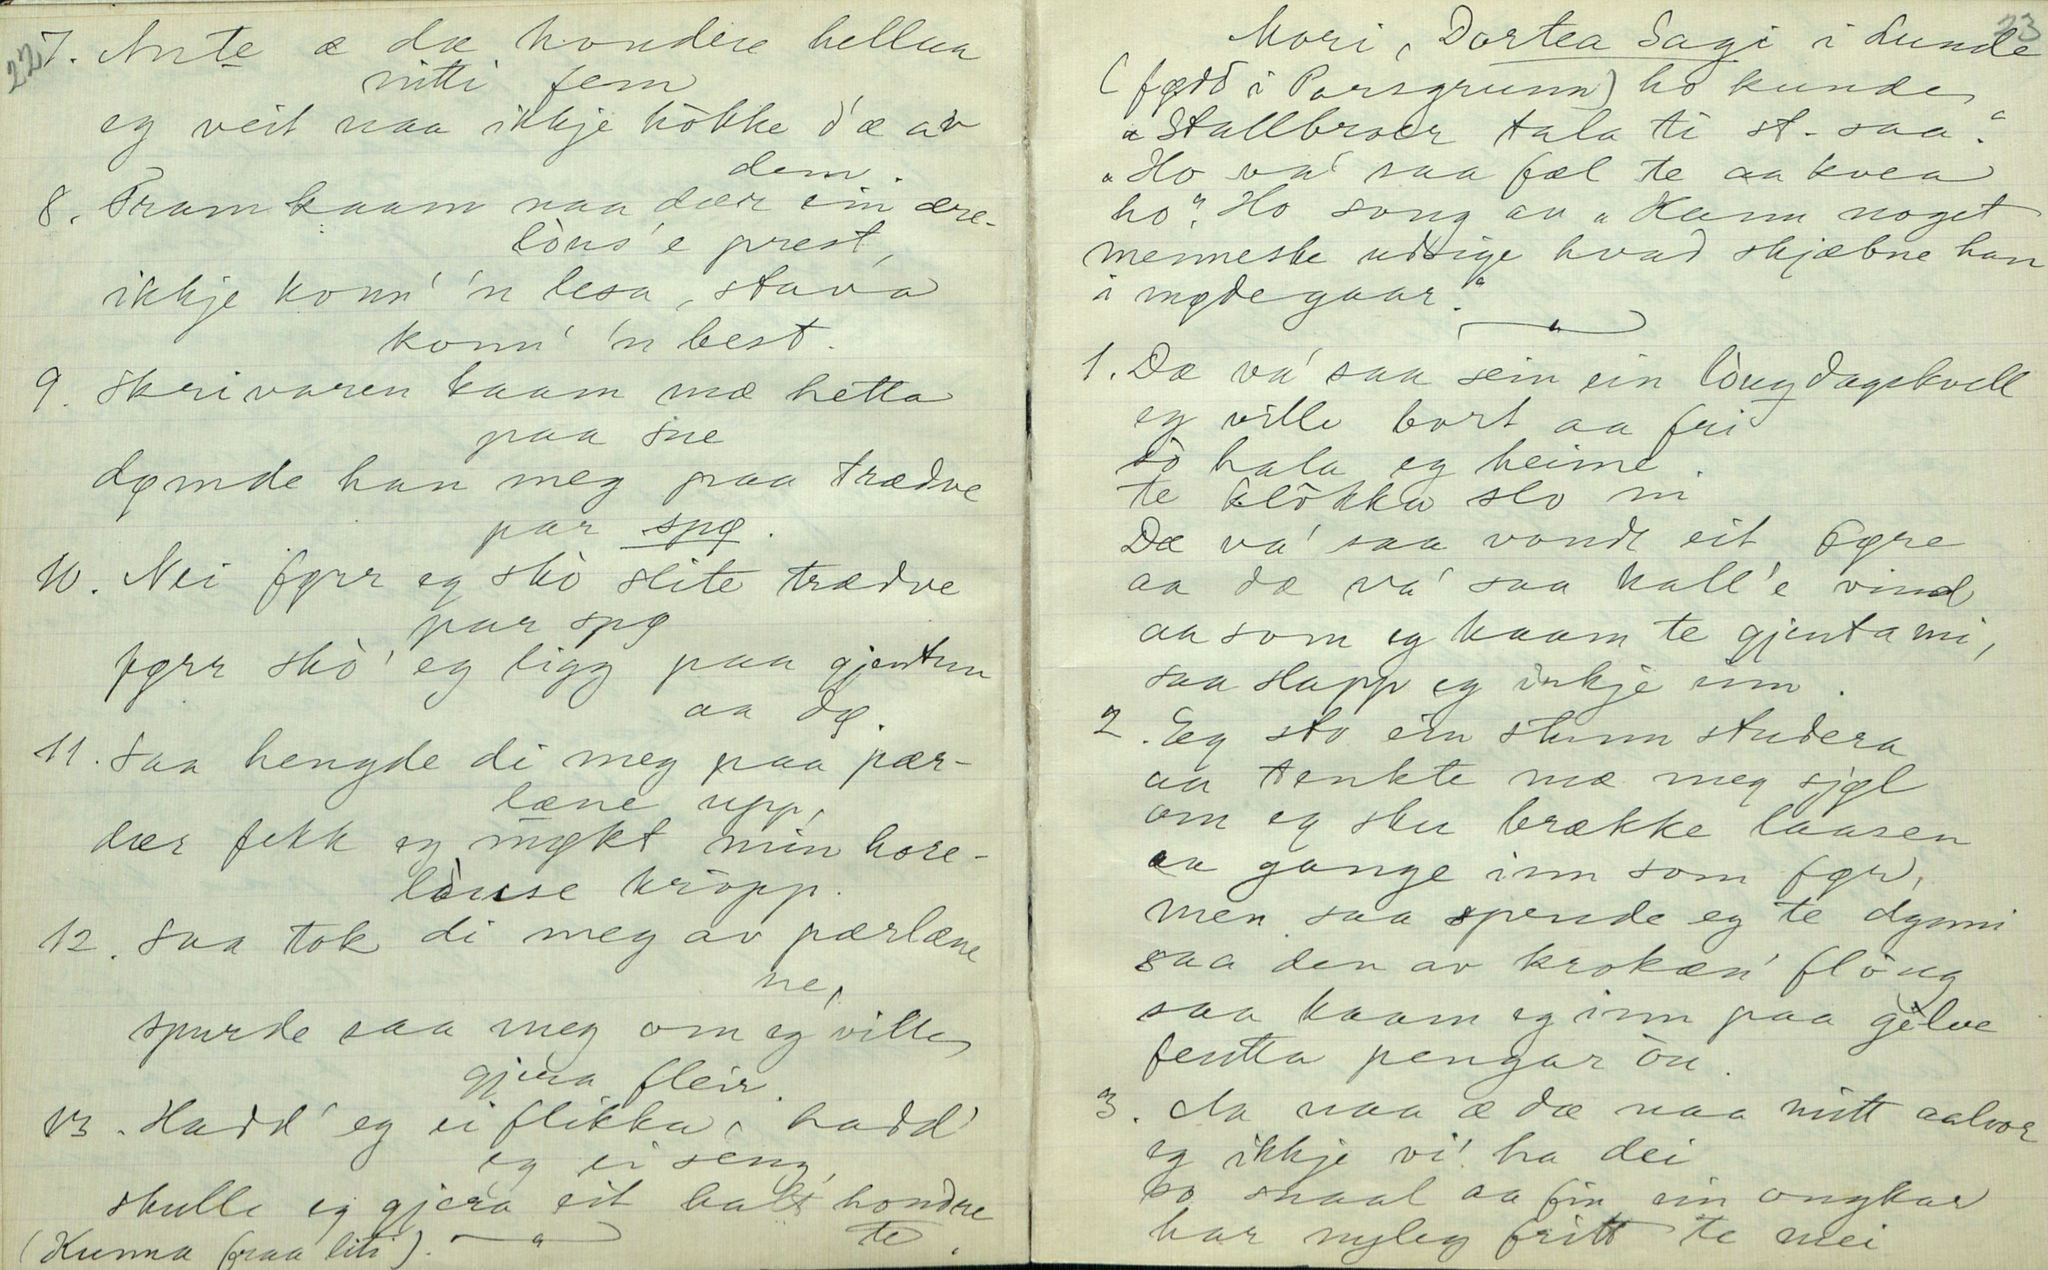 22
7. Ante æ dæ hondre hellaa
nitti fem
eg veit naa ikkje hòkke d'æ av
dem.
8. Fram kaam naa dær ein ære-
lòus'e prest,
ikkje konn' 'n lesa, stava
konn' 'n best.
9. Skrivaren kaam mæ hetta
paa sne
dømde han meg paa trædve
par spø.
10. Nei førr eg skò slite trædve
par spø
førr skò' eg ligg paa gjentun
aa dø.
11. Saa hengde di meg paa pær-
læne upp,
dær fekk eg møkt min hore-
lòuse kropp.
12. Saa tok di meg av pærlæne
ne,
spurde saa meg om eg ville
gjera fleir.
13. Hadd' eg ei flikka, hadd'
eg ei seng,
skulle eg gjera eit halt hondre
te.
(Kunna fraa liti).
23
Mori, Dortea Sagi i Lunde
(fødd i Porsgrunn) ho kunde
"Stallbroer tala ti st. saa".
"Ho va' saa fæl te aa kvea
ho". Ho song au "Kann noget
menneske udsige hvad skjæbne han
i mødegaar."
1. Dæ va' saa sein ein lòugdagskvell
eg ville bort aa fri
so hala eg heime
te klòkka slo ni
Dæ va' saa vondt eit føre
aa dæ va' saa kall'e vind
aa som eg kaam te gjenta mi,
saa slapp eg inkje inn.
2. Eg sto ein stunn studera
aa tenkte mæ meg sjøl
om eg sku brække laasen
aa gange inn som før,
men saa spende eg te dønni
saa den av krokæn' flòug
saa kaam eg inn paa gòlve
fentta pengar òu.
3. Aa naa æ dæ naa mitt aalvor
eg ikkje vi' ha dei
so snaal aa fin ein ongkar
har nyleg fritt te mei